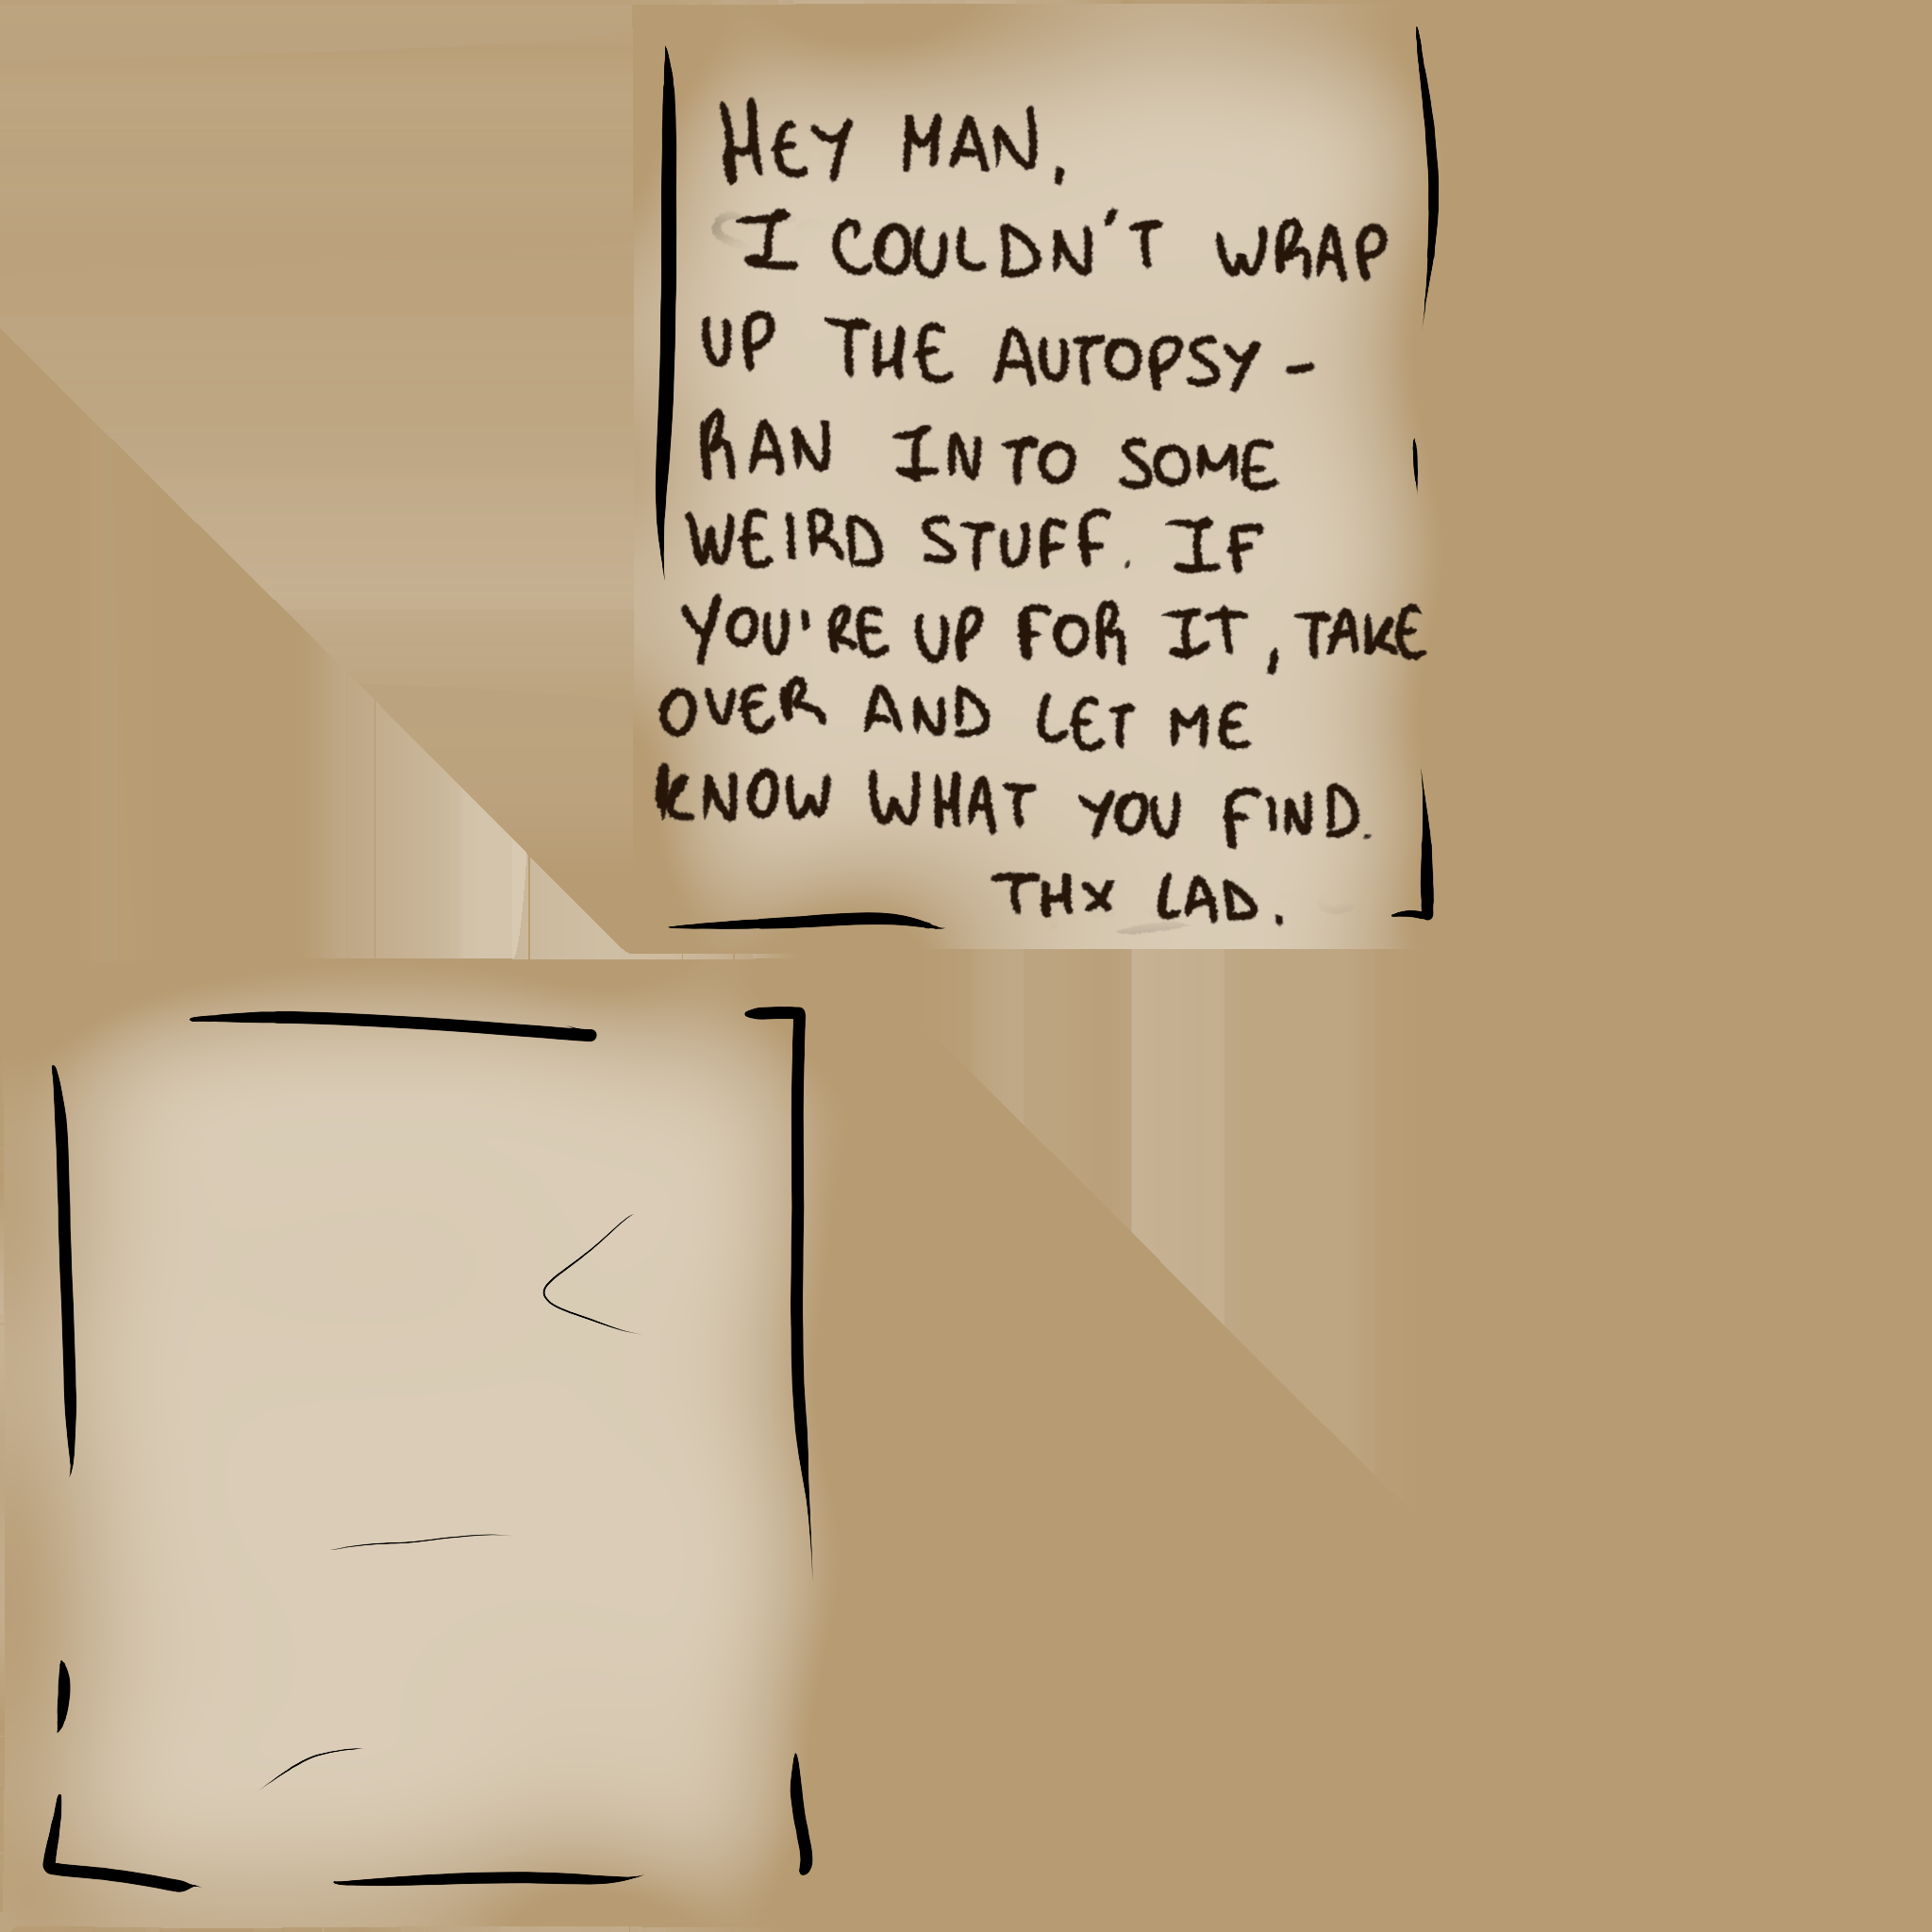 HEY MAN,
I COULDN'T WRAP
UP THE AUTOPSY-
RAN INTO SOME
WEIRD STUFF. IF
YOU'RE UP FOR IT, TAKE
OVER AND LET ME
KNOW WHAT YOU FIND.
THX LAD.